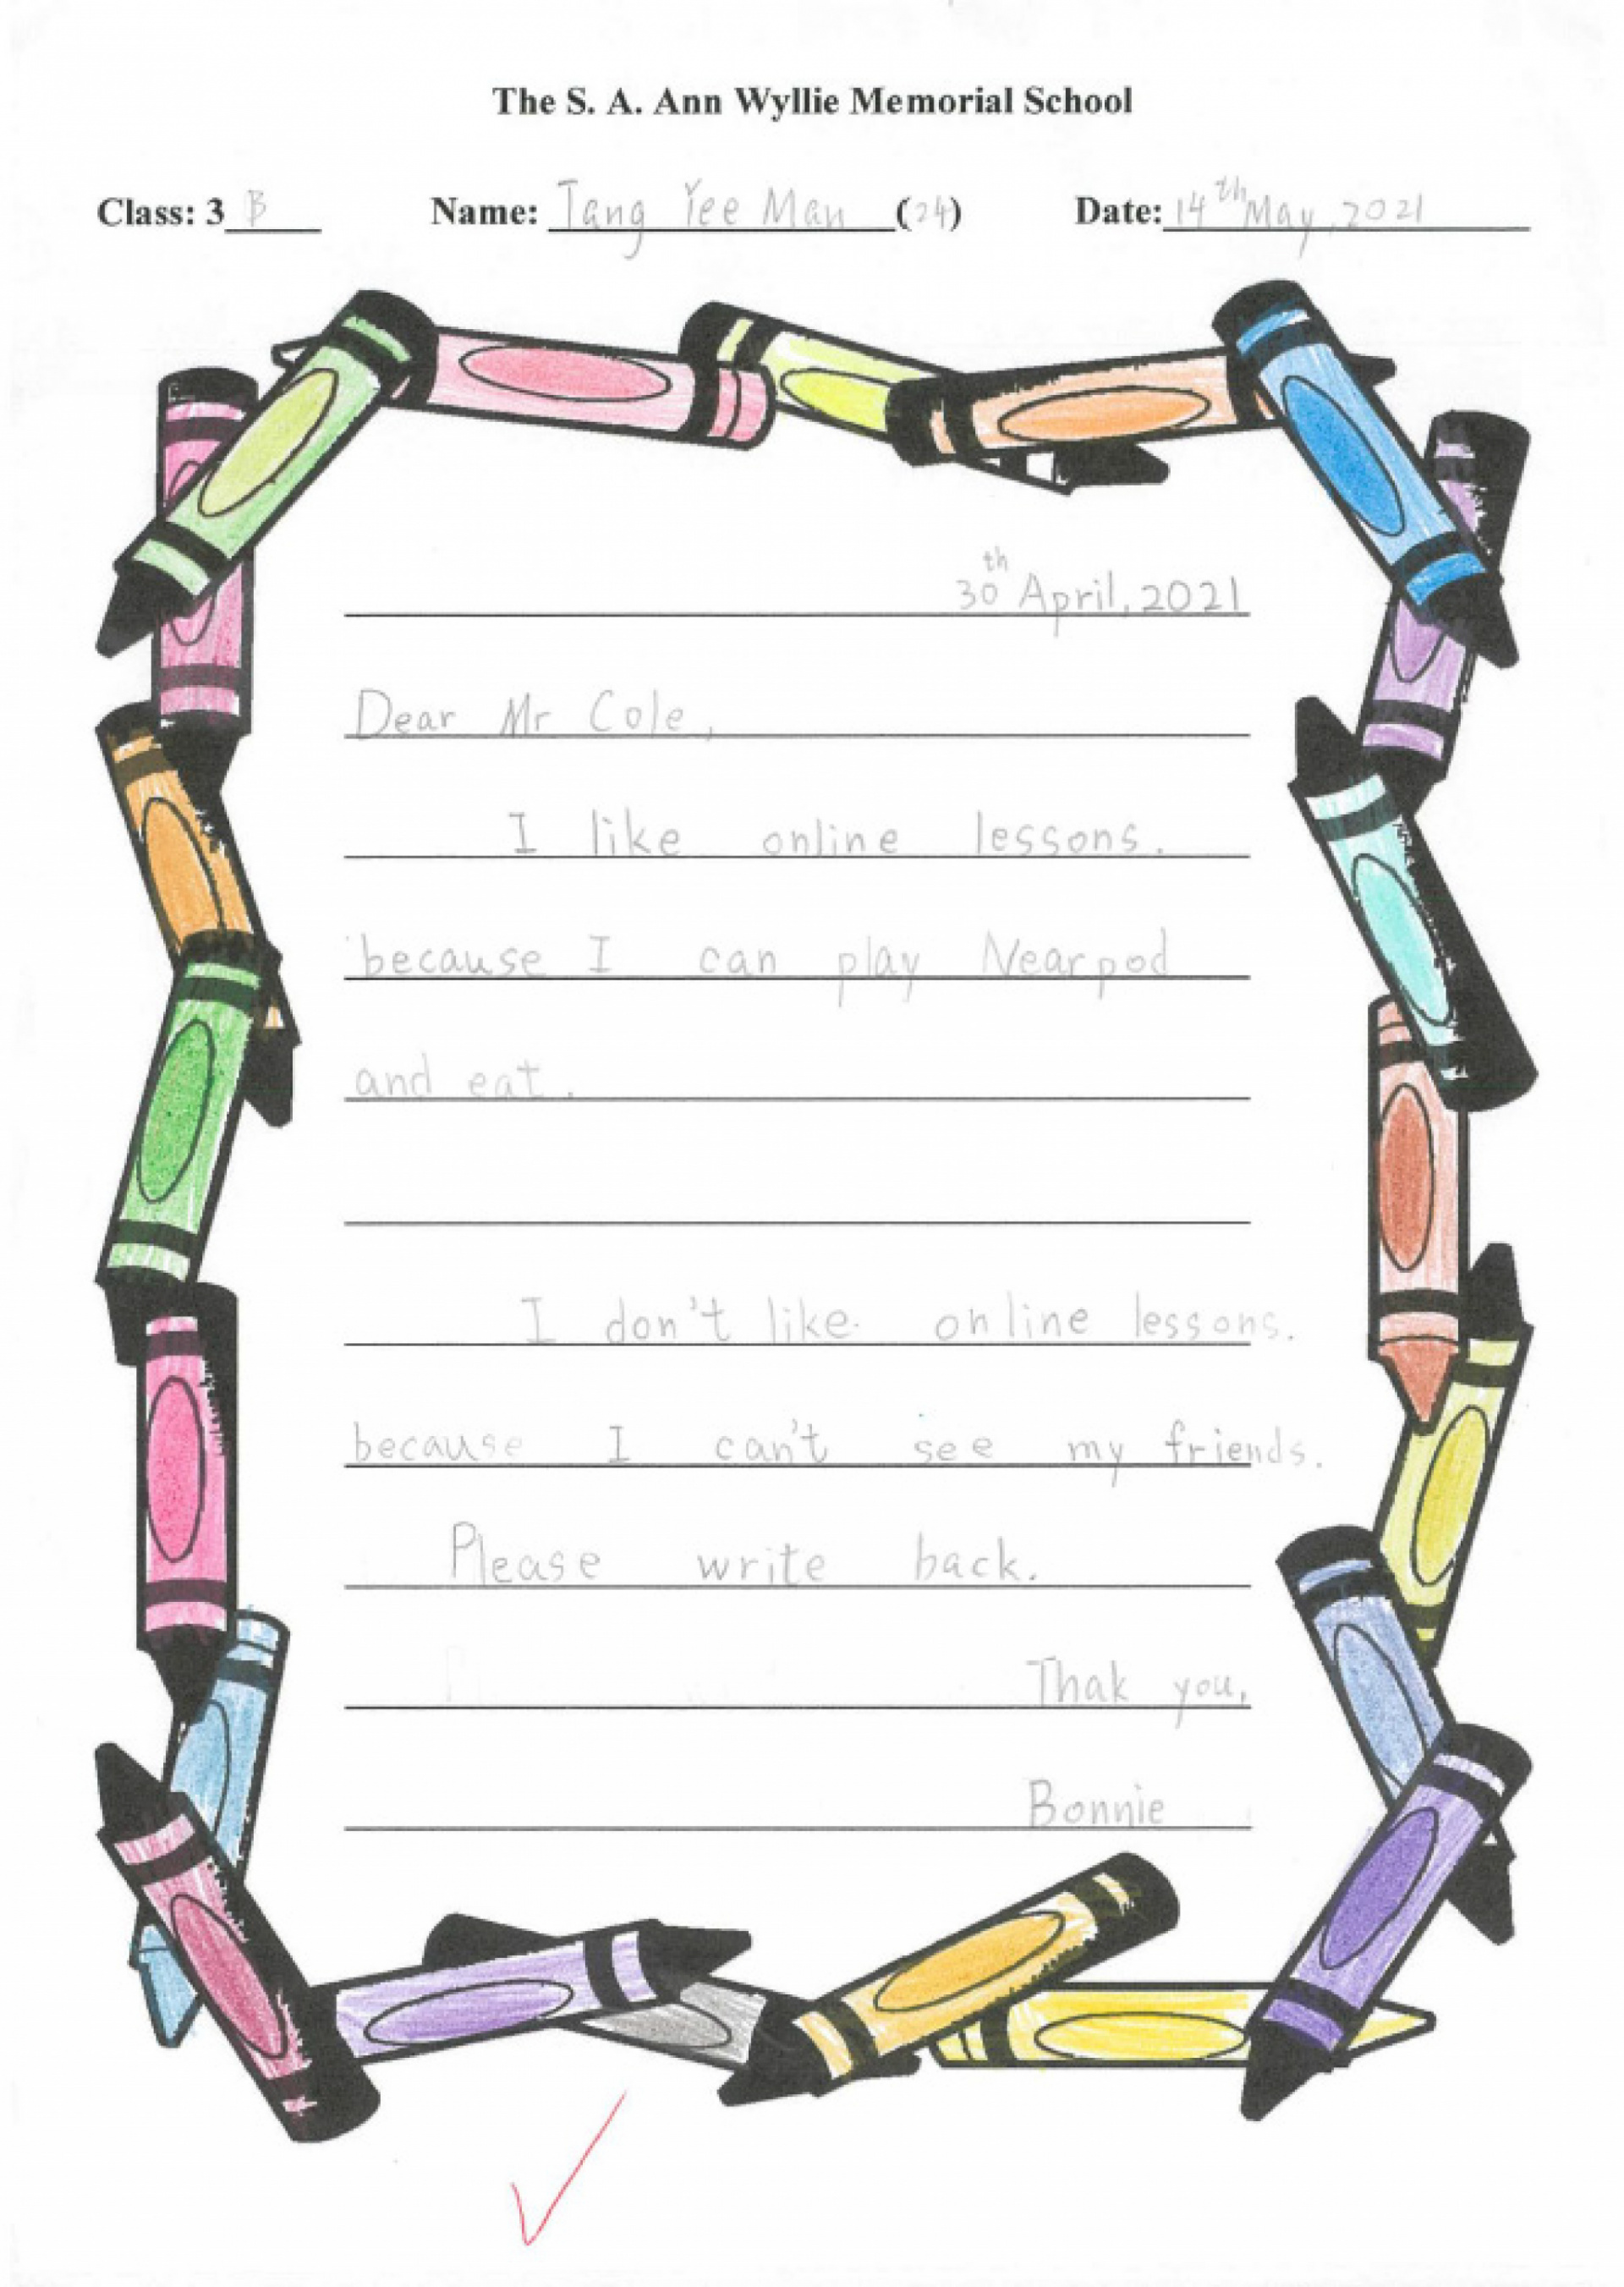 The S. A. Ann Wyllie Memorial School
Class: 3 B Name: Tang Yee Man (24) Date: 14th May, 2021
30th April, 2021
Dear Mr Cole,
I like online lessons.
because I can play Nearpod
and eat.
I don't like online lessons.
because I can't see my friends.
Please write back.
Thak you,
Bonnie